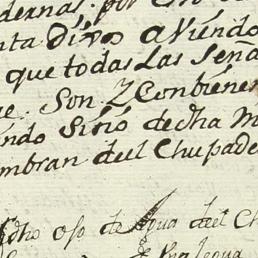 dernas. por
nta divo aviendo
que todas las Seña
e. Son 2 Conbiene
ndo Sitio de dha M
mbran deel Chupade
dho oso de Agua deel Ch
legua